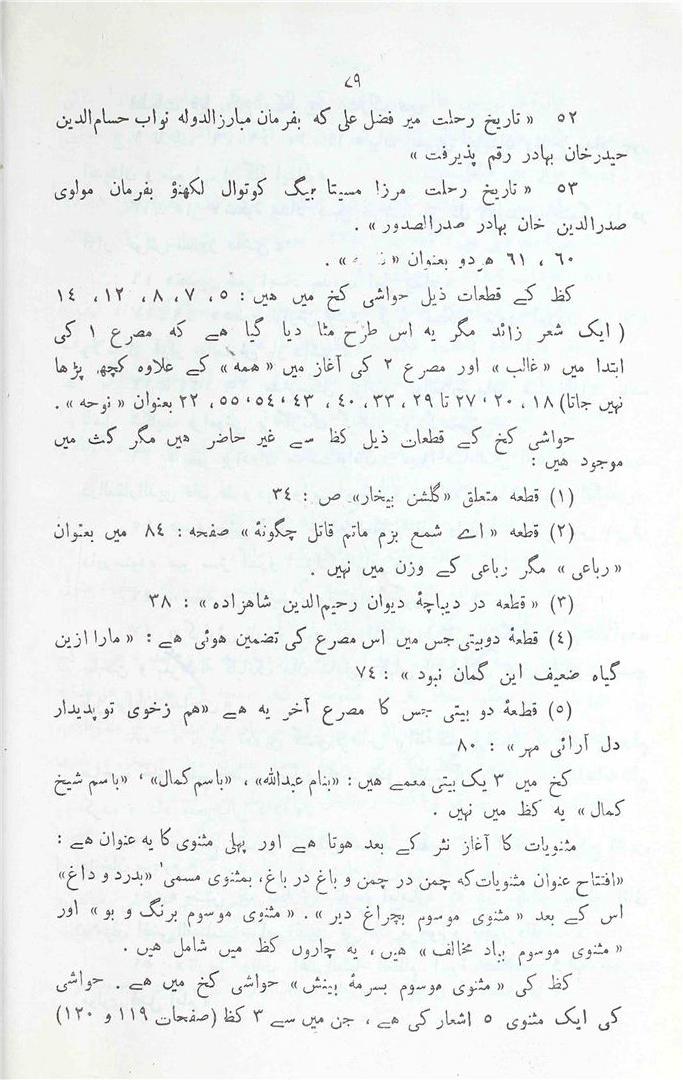 ۷۹
۵۲ « تاریخ رحلت میر فضل علی که بفرمان مبارزالدوله نواب حسام‌الدین
حیدرخان بهادر رقم پذیرفت »
۵۳ « تاریخ رحلت مرزا مسیتا بیگ کوتوال لکهنؤ بفرمان مولوی
صدرالدین خان بهادر صدرالصدور » .
۶۰ ، ۶۱ هر دو بعنوان « » .
کظ کے قطعات ذیل حواشی کخ میں هیں : ۵ ، ۷ ، ۸ ، ۱۲ ، ۱۴
( ایک شعر زائد مگر یه اس طرح مٹا دیا گیا هے که مصرع ۱ کی
ابتدا میں «غالب» اور مصرع ۲ کی آغاز میں «همه» کے علاوه کچھ پڑها
نهیں جاتا) ۱۸ ، ۲۰ ، ۲۷ تا ۲۹ ، ۳۳ ، ۴۰ ، ۴۳ ، ۵۴ ، ۵۵ ، ۲۲ بعنوان « نوحه » .
حواشی کخ کے قطعات ذیل کظ سے غیر حاضر هیں مگر کث میں
موجود هیں :
(۱) قطعه متعلق «گلشن بیخار» ص : ۳۴
(۲) قطعه « اے شمع بزم ماتم قاتل چگونۀ » صفحه : ۸۴ میں بعنوان
« رباعی » مگر رباعی کے وزن میں نهیں .
(۳) « قطعه در دیباچۀ دیوان رحیم‌الدین شاهزاده » : ۳۸
(۴) قطعۀ دوبیتی جس میں اس مصرع کی تضمین هوئی هے : « مارا ازین
گیاه ضعیف این گمان نبود » : ۷۴
(۵) قطعۀ دو بیتی جس کا مصرع آخر یه هے «هم زخوی تو پدیدار
دل آرائی مهر» : ۸۰
کخ میں ۳ یک بیتی معمے هیں : «بنام عبدالله» ، «باسم کمال» ، «باسم شیخ
کمال » یه کظ میں نهیں .
مثنویات کا آغاز نثر کے بعد هوتا هے اور پهلی مثنوی کا یه عنوان هے :
«افتتاح عنوان مثنویات که چمن در چمن و باغ در باغ ، بمثنوی مسمی' «بدرد و داغ»
اس کے بعد « مثنوی موسوم بچراغ دیر » . « مثنوی موسوم برنگ و بو » اور
« مثنوی موسوم بباد مخالف » هیں ، یه چاروں کظ میں شامل هیں .
کظ کی « مثنوی موسوم بسرمۀ بینش » حواشی کخ میں هے . حواشی
کی ایک مثنوی ۵ اشعار کی هے ، جن میں سے ۳ کظ (صفحات ۱۱۹ و ۱۲۰)